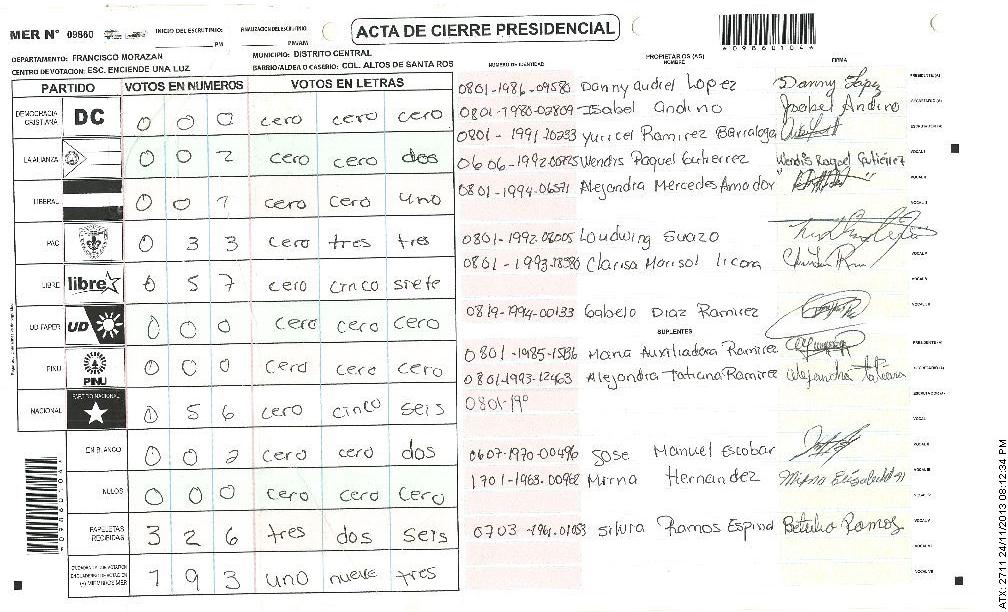 MER N° 09860 INICIO DEL ESCRUTINIO: PM FINALIZACION DEL ESCRUTINIO: PM/AM ACTA DE CIERRE PRESIDENCIAL
DEPARTAMENTO: FRANCISCO MORAZAN MUNICIPIO: DISTRITO CENTRAL
CENTRO DE VOTACION: ESC. ENCIENDE UNA LUZ BARRIO/ALDEA O CASERIO: COL. ALTOS DE SANTA ROS
NUMERO DE IDENTIDAD PROPIETARIOS (AS) NOMBRE FIRMA
PARTIDO VOTOS EN NUMEROS VOTOS EN LETRAS
DEMOCRACIA CRISTIANA DC 0 0 0 cero cero cero
LA ALIANZA 0 0 2 cero cero dos
LIBERAL 0 0 1 cero cero uno
PAC 0 3 3 cero tres tres
LIBRE libre 0 5 7 cero cinco siete
UD FAPER UD 0 0 0 cero cero cero
PINU PINU 0 0 0 cero cero cero
NACIONAL PARTIDO NACIONAL 0 5 6 cero cinco seis
EN BLANCO 0 0 2 cero cero dos
NULOS 0 0 0 cero cero cero
PAPELETAS RECIBIDAS 3 2 6 tres dos seis
1 9 3 uno nueve tres
0801-1986-09580 Danny audiel Lopez Danny Lopez PRESIDENTE (A)
0801-1980-02809 Isabel Andino Isabel Andino SECRETARIO (A)
0801-1991-20293 Yuricel Ramirez Barralaga ESCRUTADOR (A)
0606-1992-00725 Wendis Raquel Gutierrez Wendis Raquel Gutiérrez VOCAL I
0801-1994-06571 Alejandra Mercedes Amador VOCAL II
VOCAL III
0801-1992-08005 Loudwing Suazo VOCAL IV
0801-1993-18580 Clarisa Marisol licona VOCAL V
0819-1994-00133 Gabelo Diaz Ramirez
SUPLENTES
0801-1985-15836 Maria Auxiliadora Ramirez PRESIDENTE (A)
0801-1993-12463 Alejandra Tatiana Ramirez Alejandra Tatiana SECRETARIO (A)
0801-19
0607-1970-00496 Jose Manuel Escobar VOCAL II
1701-1963-00962 Mirna Hernandez VOCAL III
0703-1961-01053 Ramos Espinal Ramos VOCAL V
4098601044
ATX: 2711 24/11/2013 08:12:34 PM